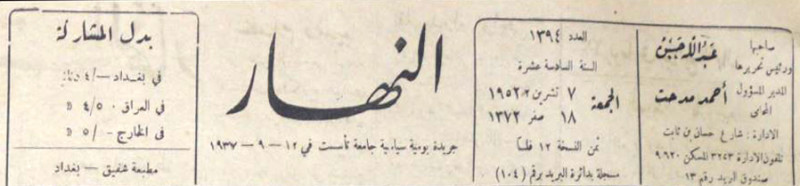 صاحبها
ورئيس تحريرها
عبدالله حسن
المدير المسؤول
المحامي
أحمد مدحت
الادارة : شارع حسان بن ثابت
تلفون الادارة ٣٢٥٣ المسكن ٩٦٢٠
صندوق البريد رقم ١٣
العدد ١٣٩٤
السنة السادسة عشرة
الجمعة
٧ تشرين ٢ ١٩٥٢
١٨ صفر ١٣٧٢
ثمن النسخة ١٢ فلساً
مسجلة بدائرة البريد برقم (١٠٤)
النهار
جريدة يومية سياسية جامعة تأسست في ١٢ - ٩ - ١٩٣٧
بدل المشاركة
في بغداد —/٤
في العراق ٤/٥٠٠ D
في الخارج —/٥ D
مطبعة شفيق — بغداد